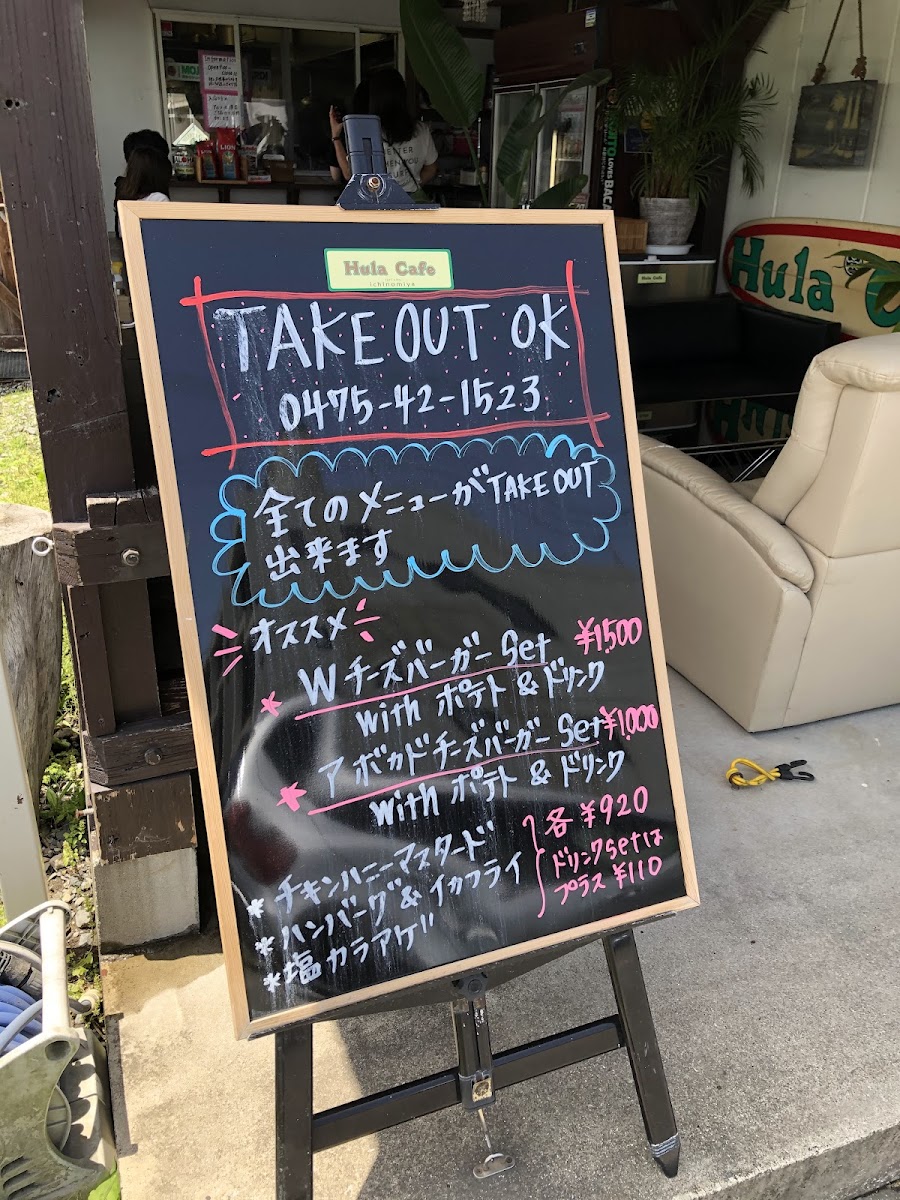 Hula Cafe
ichinomiya
TAKE OUT OK
0475-42-1523
全てのメニューがTAKE OUT
出来ます
オススメ
Wチーズバーガー Set ¥1,500
with ポテト & ドリンク
アボカドチーズバーガー Set ¥1,000
with ポテト & ドリンク
*チキンハニーマスタード
*ハンバーグ&イカフライ
*塩カラアゲ
各 ¥920
ドリンクSetは
プラス ¥110
Hula C
LION
LOVES